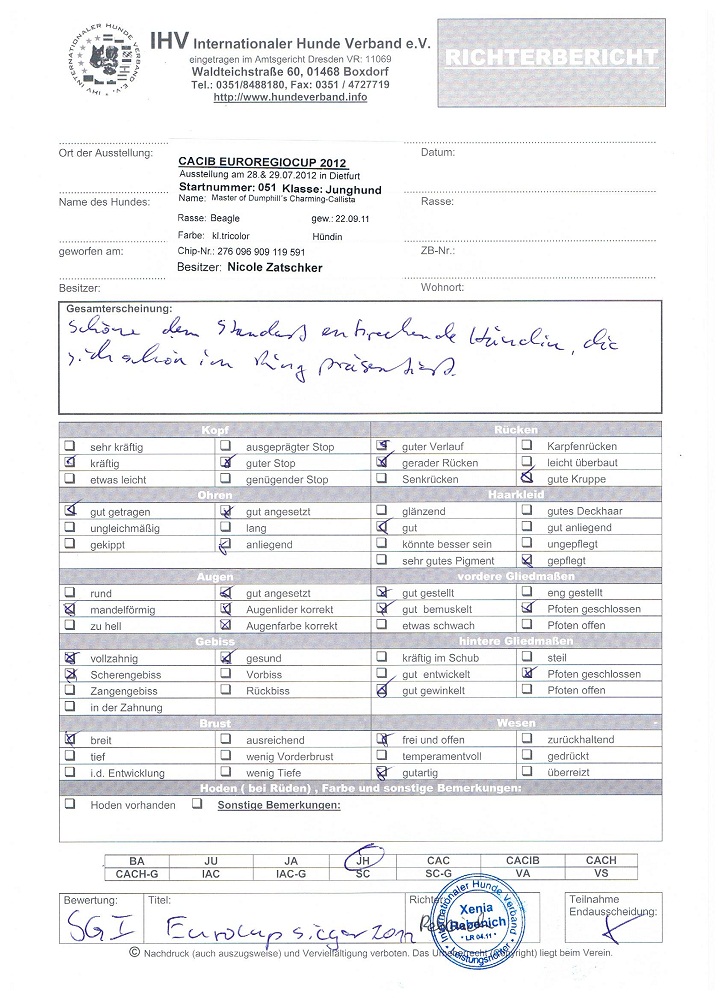 INTERNATIONALER HUNDE VERBAND E.V. * IHV
IHV Internationaler Hunde Verband e.V.
eingetragen im Amtsgericht Dresden VR: 11069
Waldteichstraße 60, 01468 Boxdorf
Tel.: 0351/8488180, Fax: 0351 / 4727719
http://www.hundeverband.info
RICHTERBERICHT
Ort der Ausstellung:
CACIB EUROREGIOCUP 2012
Ausstellung am 28.& 29.07.2012 in Dietfurt
Datum:
Startnummer: 051 Klasse: Junghund
Name des Hundes:
Name: Master of Dumphill's Charming-Callista
Rasse:
Rasse: Beagle gew.: 22.09.11
Farbe: kl.tricolor Hündin
geworfen am:
Chip-Nr.: 276 096 909 119 591
ZB-Nr.:
Besitzer: Nicole Zatschker
Besitzer:
Wohnort:
Gesamterscheinung:
Schöne dem Standart entsprechende Hündin, die
sich schön im Ring präsentiert.
Kopf Rücken
sehr kräftig ausgeprägter Stop guter Verlauf Karpfenrücken
kräftig guter Stop gerader Rücken leicht überbaut
etwas leicht genügender Stop Senkrücken gute Kruppe
Ohren Haarkleid
gut getragen gut angesetzt glänzend gutes Deckhaar
ungleichmäßig lang gut gut anliegend
gekippt anliegend könnte besser sein ungepflegt
sehr gutes Pigment gepflegt
Augen vordere Gliedmaßen
rund gut angesetzt gut gestellt eng gestellt
mandelförmig Augenlider korrekt gut bemuskelt Pfoten geschlossen
zu hell Augenfarbe korrekt etwas schwach Pfoten offen
Gebiss hintere Gliedmaßen
vollzahnig gesund kräftig im Schub steil
Scherengebiss Vorbiss gut entwickelt Pfoten geschlossen
Zangengebiss Rückbiss gut gewinkelt Pfoten offen
in der Zahnung
Brust Wesen
breit ausreichend frei und offen zurückhaltend
tief wenig Vorderbrust temperamentvoll gedrückt
i.d. Entwicklung wenig Tiefe gutartig überreizt
Hoden ( bei Rüden) , Farbe und sonstige Bemerkungen:
Hoden vorhanden Sonstige Bemerkungen:
BA JU JA JH CAC CACIB CACH
CACH-G IAC IAC-G SC SC-G VA VS
Bewertung: Titel: Richter Teilnahme
Endausscheidung:
SG I Eurocupsieger 2012
Internationaler Hunde Verband
Xenia
Rabenich
* LR 04.11 *
Leistungsrichter
© Nachdruck (auch auszugsweise) und Vervielfältigung verboten. Das Urheberrecht (Copyright) liegt beim Verein.